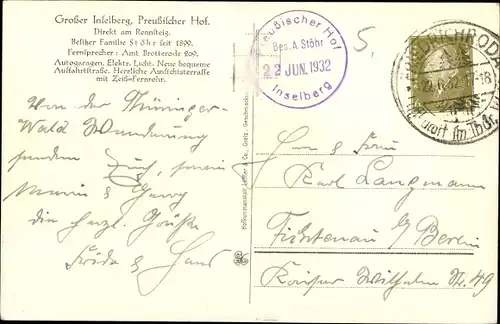 Großer Inselberg, Preußischer Hof.
Direkt am Rennsteig.
Besitzer Familie Stöhr seit 1899.
Fernsprecher: Amt Brotterode 209.
Autogaragen. Elektr. Licht. Neue bequeme
Auffahrtstraße. Herrliche Aussichtsterrasse
mit Zeiß-Fernrohr.
Preußischer Hof
Bes. A. Stöhr
22 JUN. 1932
Inselberg
5.
FRIEDRICHRODA
Von der Thüringer-
Wald Wanderung
senden Euch, sowie
Maria & Georg
die herzl. Grüße
Frida & Hans
Herrn & Frau
Karl Langmann
Fichtenau b/ Berlin
Kaiser Wilhelm Str. 49